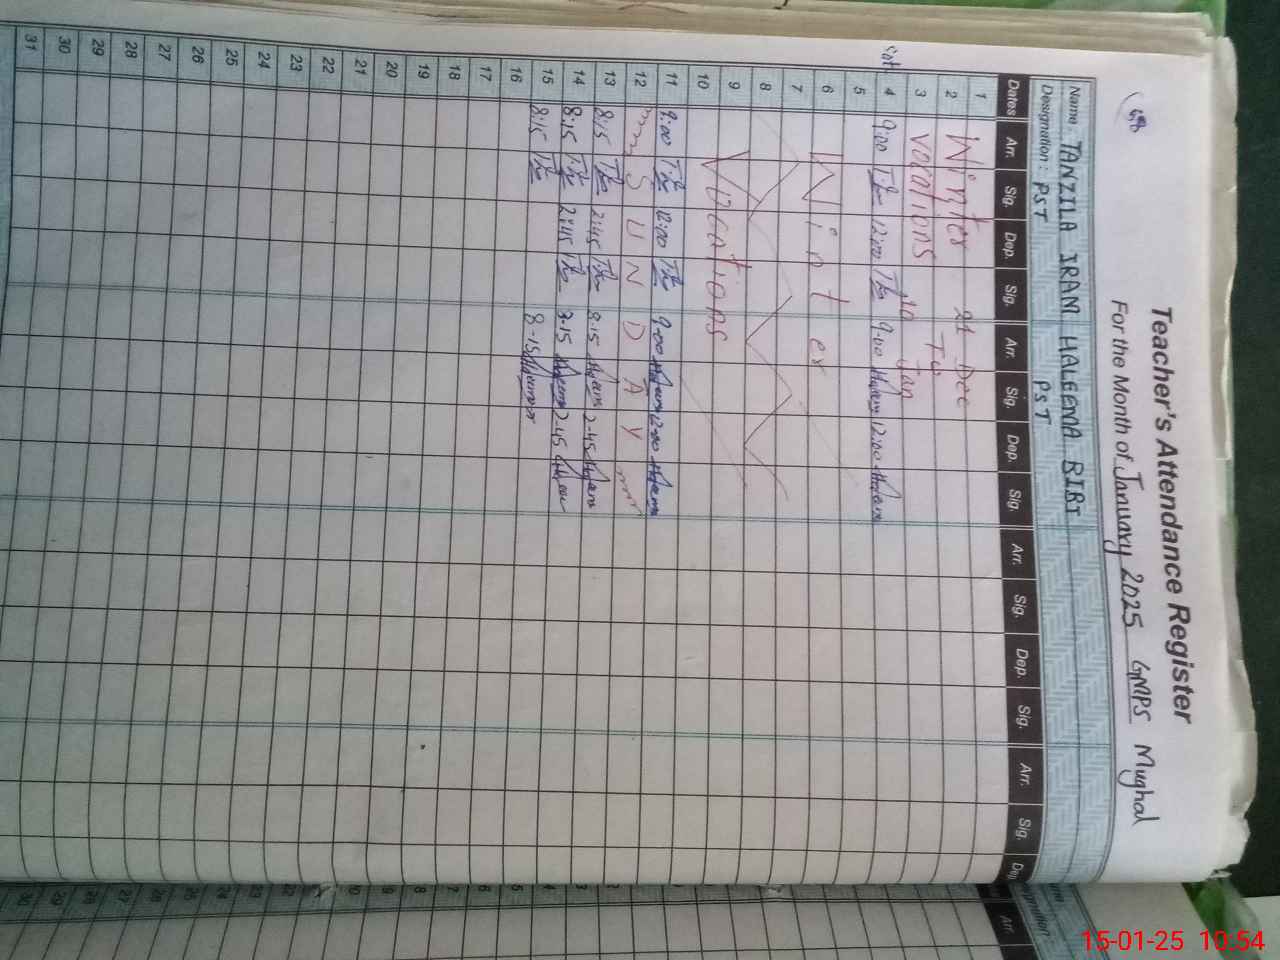 Teacher's Attendance Register
For the Month of January 2025 GMPS Mughal
Name : TANZILA IRAM HALEEMA BIBI
Designation : PST PST
Dates Arr. Sig. Dep. Sig. Arr. Sig. Dep. Sig. Arr. Sig. Dep. Sig. Arr. Sig. Dep
1
2 Winter 21 Dec
3 Vocations To
10 Jan
Sat 4 9:00 12:00 9:00 12:00
5
6 Winter
7
8
9 Vocations
10
11 9:00 12:00 9:00 12:00
12 SUNDAY
13 8:15 2:45 8:15 2-45
14 8:15 2:45 8:15 2-45
15 8:15 8-15
16
17
18
19
20
21
22
23
24
25
26
27
28
29
30
31
Arr.
15-01-25 10:54